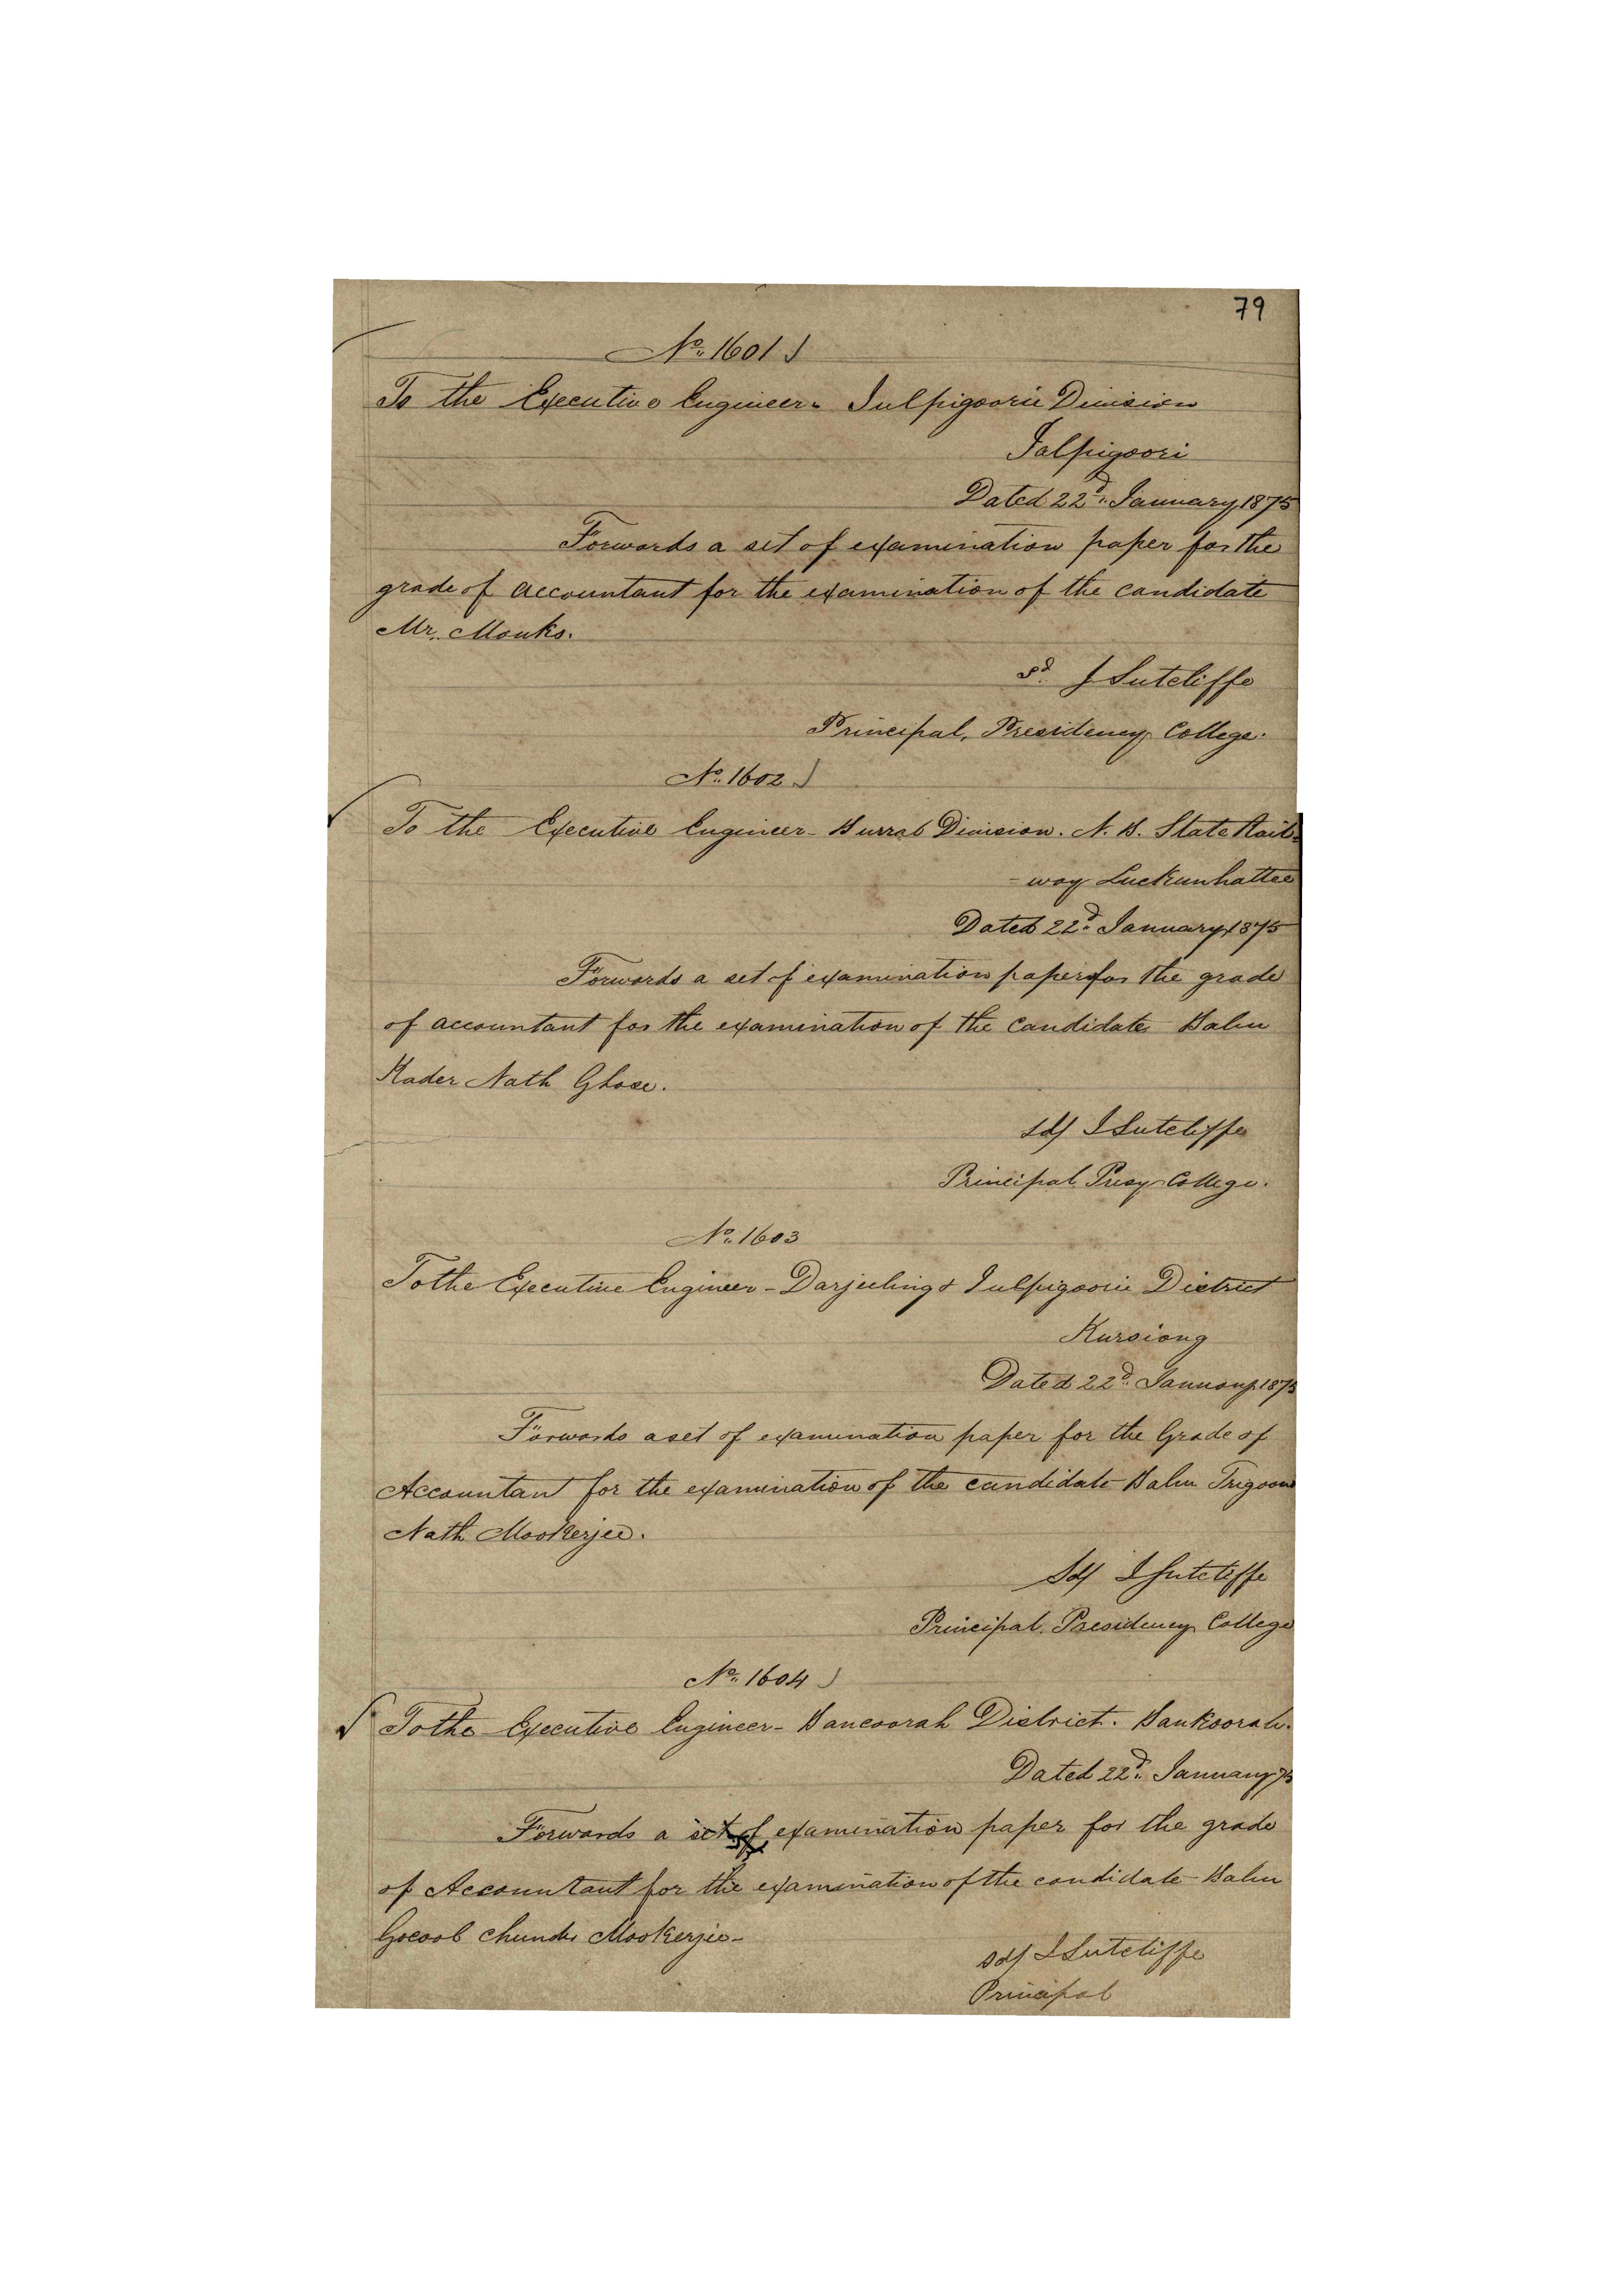 79
No. 1601
To the Executive Engineer - Julpigoorie Division
Jalpigoori
Dated 22d. January 1875
Forwards a set of examination paper for the
grade of accountant for the examination of the candidate
Mr. Monks.
Sd. J Sutcliffe
Principal, Presidency College.
No. 1602
To the Executive Engineer - Division. N. B. State Rail-
-way Luckunhattee
Dated 22d. January 1875
Forwards a set of examination paper for the grade
of accountant for the examination of the candidate Babu
Kader Nath Ghose.
Sd/ J Sutcliffe
Principal Presy College.
No. 1603
To the Executive Engineer - Darjeeling & Julpigoorie District
Kursiong
Dated 22d. January 1875
Forwards a set of examination paper for the Grade of
Accountant for the examination of the candidate Babu Trigoona
Nath Mookerjee.
Sd/ J Sutcliffe
Principal. Presidency College
No. 1604
To the Executive Engineer - Bancoorah District. Bankoorah.
Dated 22d. January 75
Forwards a set of examination paper for the grade
of Accountant for the examination of the candidate Babu
Gocool Chunder Mookerjee -
Sd/ J Sutcliffe
Principal